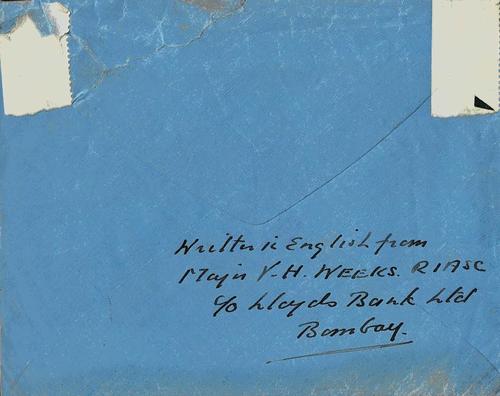 Written in English from
Major V.H. WEEKS. RIASC
c/o Lloyds Bank Ltd
Bombay.